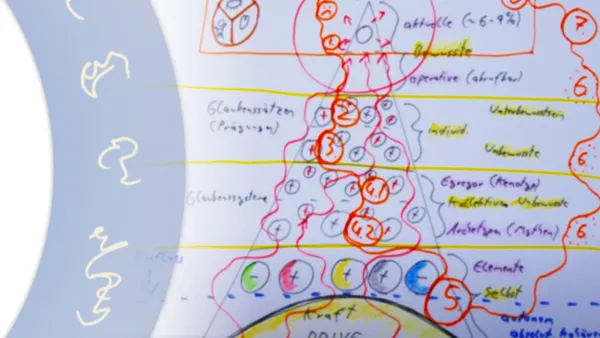 aktuelle (~6-9%)
7
Bewusste
operative (abrufbar)
6
Glaubenssätzen
(Prägungen)
2
individ.
Unterbewusstsein
3
Unbewusste
6
Glaubenssysteme
4.1
Egregor
Kollektives Unbewusste
4.2
Archetypen (Mythen)
6
Einfluss
Elemente
Selbst
5
autonom
absolut
Kraft
DRIVE